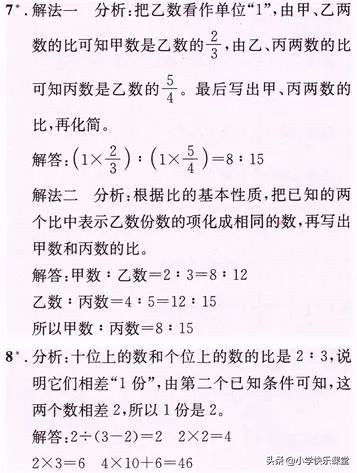 7*.解法一 分析:把乙数看作单位“1”,由甲、乙两
数的比可知甲数是乙数的2/3,由乙、丙两数的比
可知丙数是乙数的5/4。最后写出甲、丙两数的
比,再化简。
解答:(1×2/3)∶(1×5/4)=8∶15
解法二 分析:根据比的基本性质,把已知的两
个比中表示乙数份数的项化成相同的数,再写出
甲数和丙数的比。
解答:甲数∶乙数=2∶3=8∶12
乙数∶丙数=4∶5=12∶15
所以甲数∶丙数=8∶15
8*.分析:十位上的数和个位上的数的比是2∶3,说
明它们相差“1份”,由第二个已知条件可知,这
两个数相差2,所以1份是2。
解答:2÷(3-2)=2 2×2=4
2×3=6 4×10+6=46
头条@小学快乐课堂